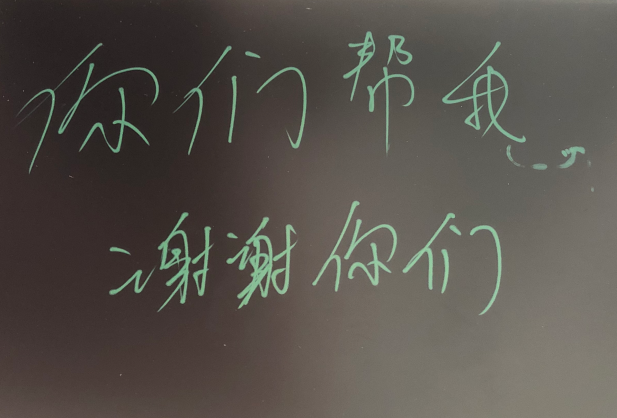 你们帮我
谢谢你们